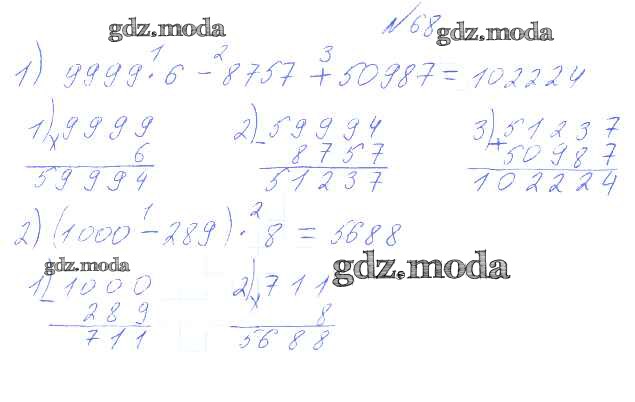 №68
gdz.moda gdz.moda
1 2 3
1) 9999 · 6 - 8757 + 50987 = 102224
1) 9999 2) 59994 3) 51237
x 6 - 8757 + 50987
59994 51237 102224
1 2
2) (1000 - 289) · 8 = 5688
gdz.moda gdz.moda
1) 1000 2) 711
- 289 x 8
711 5688